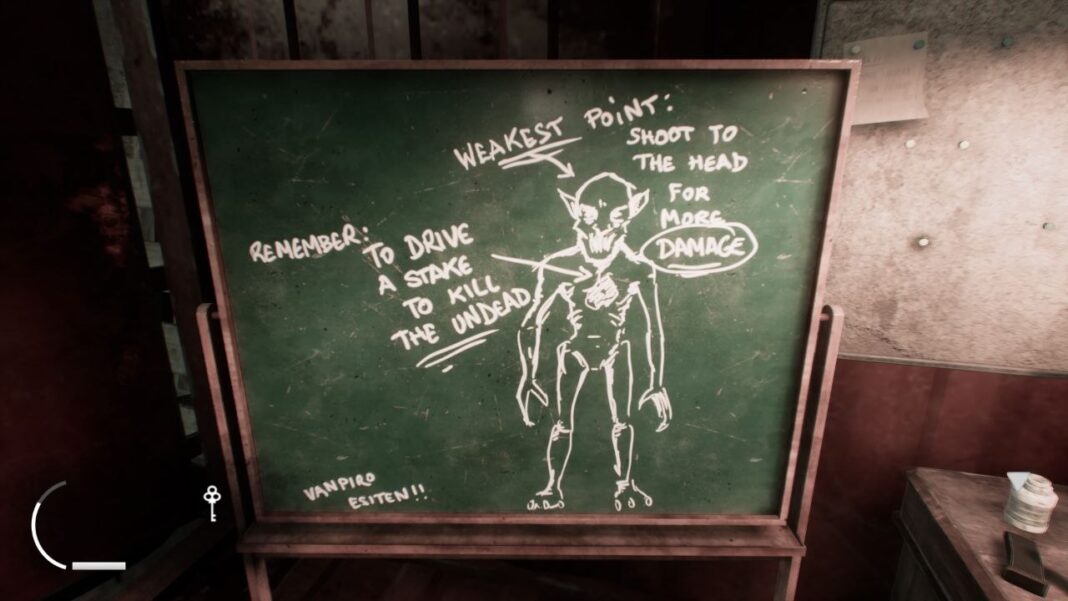 WEAKEST POINT:
SHOOT TO
THE HEAD
FOR
MORE
DAMAGE
REMEMBER: TO DRIVE
A STAKE
TO KILL
THE UNDEAD
VANPIRO
ESITEN!!